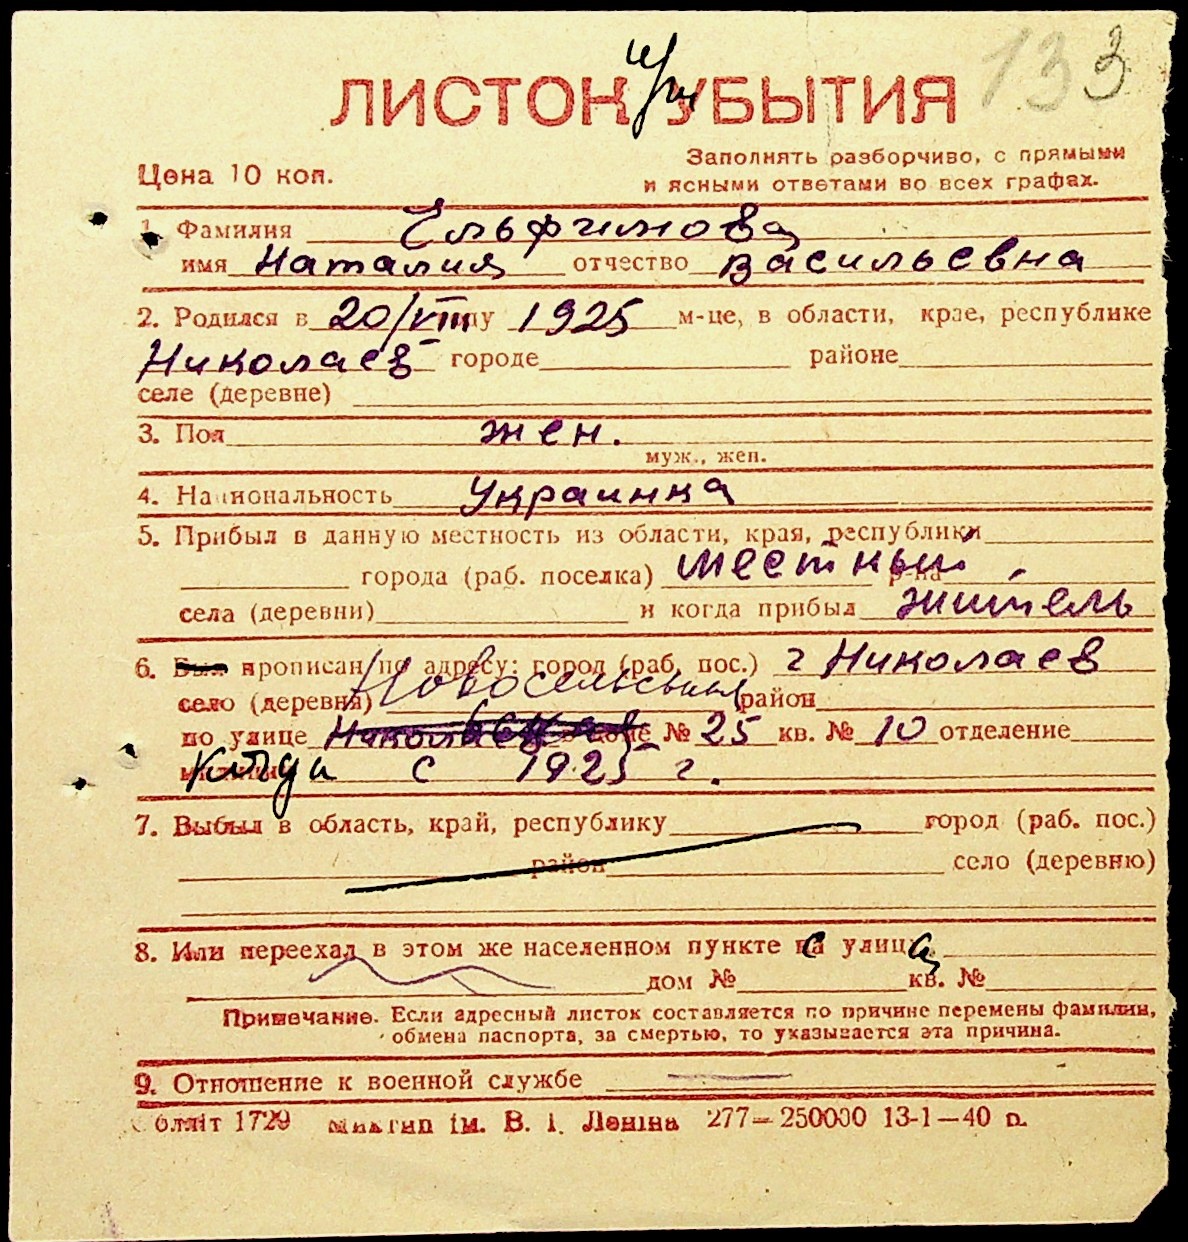 133
ЛИСТОК УБЫТИЯ
Цена 10 коп.
Заполнять разборчиво, с прямыми
и ясными ответами во всех графах.
1. Фамилия Ельфимова
имя Наталия отчество Васильевна
2. Родился в 20/VIII 1925 м-це, в области, крае, республике
Николаев городе районе
селе (деревне)
3. Пол жен.
муж., жен.
4. Национальность Украинка
5. Прибыл в данную местность из области, края, республики
города (раб. поселка) местный р-на
села (деревни) и когда прибыл житель
6. Был прописан по адресу: город (раб. пос.) г Николаев
село (деревня) Новосельская район
по улице Николаев доме № 25 кв. № 10 отделение
когда с 1925 г.
7. Выбыл в область, край, республику город (раб. пос.)
район село (деревню)
8. Или переехал в этом же населенном пункте с улицы
дом № кв. №
Примечание. Если адресный листок составляется по причине перемены фамилии,
обмена паспорта, за смертью, то указывается эта причина.
9. Отношение к военной службе
облліт 1729 Миктип ім. В. І. Леніна 277—250000 13-1—40 р.